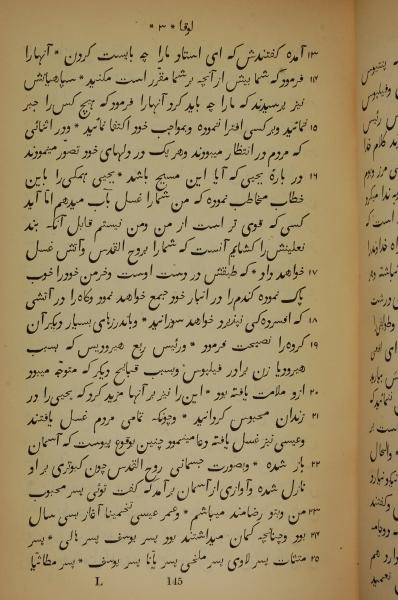 لوقا * ٣ *
١٣ آمده گفتندش که ای استاد مارا چه بایست کردن * آنهارا
١٤ فرمود که شما بیش از آنچه بر شما مقرّر است مکنید * سپاهیانش
نیز پرسیدند که ما را چه باید کرد آنهارا فرمود که هیچ کس را جبر
١٥ نمائید وبر کسی افترا ننموده وبمواجب خود اکتفا نمائید * ودر اثنائی
که مردم در انتظار میبودند وهر یک در دلهای خود تصوّر مینمودند
١٦ در بارهٔ یحیی که آیا این مسیح باشد * یحیی همکی را باین
خطاب مخاطب نموده که من شمارا غسل بآب میدهم امّا آید
کسی که قوی تر است از من ومن نیستم قابل آنکه بند
نعلینش را کشایم آنست که شمارا بروح القدس وآتش غسل
١٧ خواهد داد * که طبقش در دست اوست وخرمن خودرا خوب
پاک نموده کندم را در انبار خود جمع خواهد نمود وکاه را در آتشی
١٨ که افسرده کی نپذیرد خواهد سوزانید * وباندرزهای بسیار دیگر آن
١٩ کروه را نصیحت فرمود * ورئیس ربع هیرودیس که بسبب
هیرودیا زن برادر فیلبوس وبسبب قبایح دیکر که متوجّه میبود
٢٠ ازو ملامت یافته بود * این را نیز بر آنها مزید کرد که یحیی را در
٢١ زندان محبوس کردانید * وچونکه تمامی مردم غسل یافتند
وعیسی نیز غسل یافته دعا مینمود چنین بوقوع پیوست که آسمان
٢٢ باز شده * وبصورت جسمانی روح القدس چون کبوتری بر او
نازل شده وآوازی از آسمان برآمد که گفت توئی پسر محبوب
٢٣ من وبتو رضامند میباشم * وعمر عیسی تخمینا آغاز بسی سال
٢٤ بود وچنانچه کمان میداشتند بود پسر یوسف پسر هالی * پسر
٢٥ متثات پسر لاوی پسر ملخی پسر یانا پسر یوسف * پسر مطاثیا
L 145